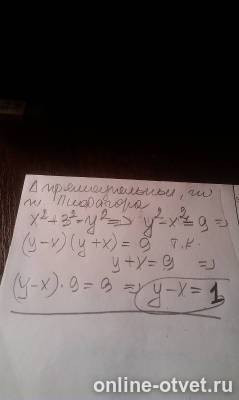 Δ прямоугольный, по
т. Пифагора
x²+3²=y² => y²-x²=9 =>
(y-x)(y+x)=9 т.к.
y+x=9 =>
(y-x)·9=9 => y-x=1
online-otvet.ru